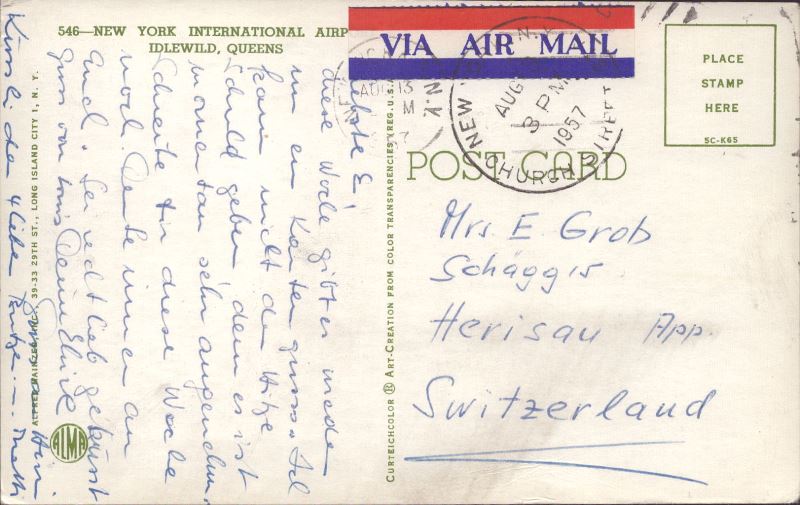 546—NEW YORK INTERNATIONAL AIRP
IDLEWILD, QUEENS
VIA AIR MAIL
NEW
N.Y.
AUG
3 PM
1957
CHURCH STREET
AUG 13
M
N.Y.
PLACE
STAMP
HERE
5C-K65
POST CARD
Mrs. E. Grob
Schäggis
Herisau App.
Switzerland
E!
diese Woche gibt es wieder
nur en Kartengruss. Ich
kann nicht der Hitze
Schuld geben denn es ist
momentan sehr angenehm.
Schreibe Dir diese Woche
noch. Denke immer an
Euch. Sei recht lieb geküsst
Gruss von
den 4 lieben
ALFRED MAINZER, INC., 39-33 29TH ST., LONG ISLAND CITY 1, N. Y.
ALMA
CURTEICHCOLOR ® ART-CREATION FROM COLOR TRANSPARENCIES (REG. U.S.